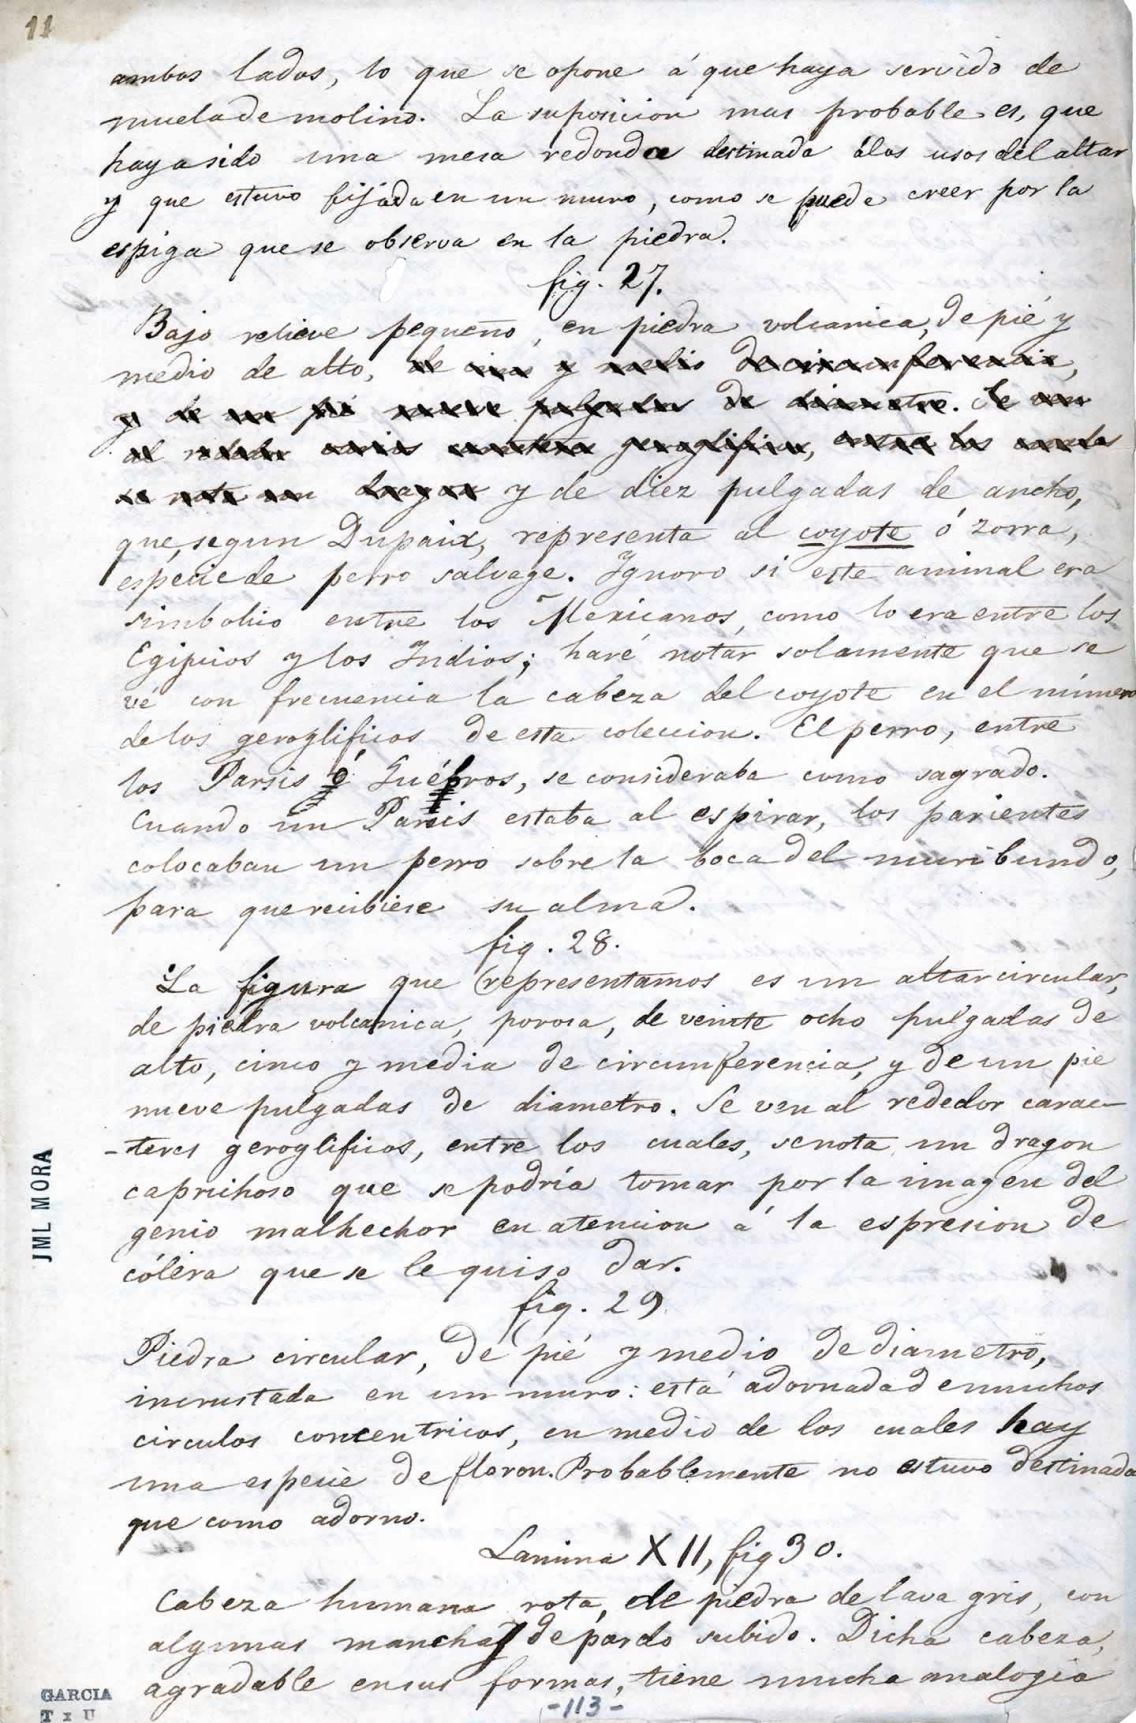 11
ambos lados, lo que se opone á que haya servido de
muela de molino. La suposicion mas probable es, que
haya sido una mesa redonda destinada á los usos del altar
y que estuvo fijada en un muro, como se puede creer por la
espiga que se observa en la piedra.
fig. 27.
Bajo relieve pequeño, en piedra volcanica, de pié y
medio de alto, de una y medio de circunferencia,
y de un pié nueve pulgadas de diametro. Se ven
al rededor caracteres geroglificos, entre los cuales
se nota un dragon y de diez pulgadas de ancho,
que, segun Dupaix, representa al coyote ó zorra,
especie de perro salvage. Ignoro si este animal era
simbolico entre los Mexicanos, como lo era entre los
Egipcios y los Indios; haré notar solamente que se
vé con frecuencia la cabeza del coyote en el número
de los geroglificos de esta coleccion. El perro, entre
los Parsis ó Guébros, se consideraba como sagrado.
Cuando un Parsis estaba al espirar, los parientes
colocaban un perro sobre la boca del muribundo,
para que recibiese su alma.
fig. 28.
La figura que representamos es un altar circular,
de piedra volcanica, porosa, de veinte ocho pulgadas de
alto, cinco y media de circumferencia, y de un pie
nueve pulgadas de diametro. Se ven al rededor carac-
-teres geroglificos, entre los cuales, se nota un dragon
caprichoso que se podría tomar por la imagen del
genio malhechor en atencion á la espresion de
cólera que se le quiso dar.
fig. 29
Piedra circular, de pié y medio de diametro,
incrustada en un muro: está adornada de muchos
circulos concentricos, en medio de los cuales hay
una especie de floron. Probablemente no estuvo destinada
que como adorno.
Lamina XII, fig 30.
Cabeza humana rota, de piedra de lava gris, con
algunas manchas de pardo subido. Dicha cabeza,
agradable en sus formas, tiene mucha analogia
-113-
JML MORA
GARCIA
T x U